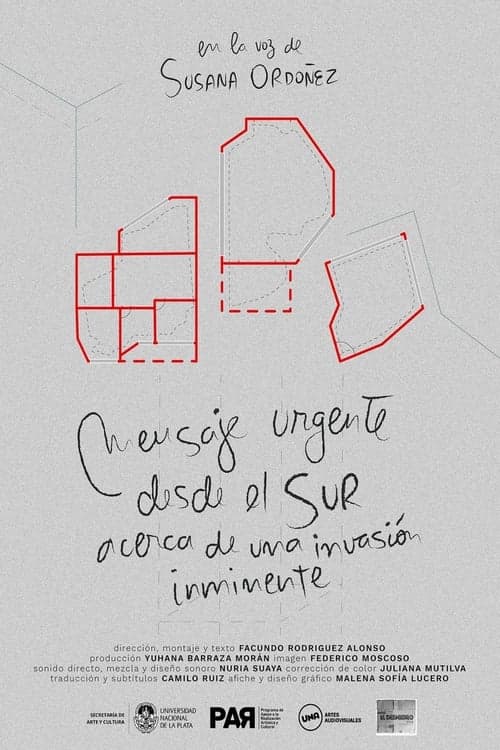 en la voz de
SUSANA ORDOÑEZ
Mensaje urgente
desde el SUR
acerca de una invasión
inminente
dirección, montaje y texto FACUNDO RODRIGUEZ ALONSO
producción YUHANA BARRAZA MORÁN imagen FEDERICO MOSCOSO
sonido directo, mezcla y diseño sonoro NURIA SUAYA corrección de color JULIANA MUTILVA
traducción y subtítulos CAMILO RUIZ afiche y diseño gráfico MALENA SOFÍA LUCERO
SECRETARÍA DE ARTE Y CULTURA
UNIVERSIDAD NACIONAL DE LA PLATA
PAR
Programa de Apoyo a la Realización Artística y Cultural
UNA
ARTES AUDIOVISUALES